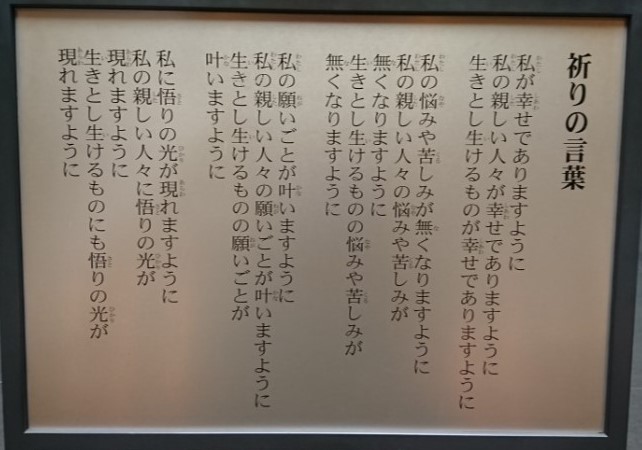 祈りの言葉
私が幸せでありますように
私の親しい人々が幸せでありますように
生きとし生けるものが幸せでありますように
私の悩みや苦しみが無くなりますように
私の親しい人々の悩みや苦しみが
無くなりますように
生きとし生けるものの悩みや苦しみが
無くなりますように
私の願いごとが叶いますように
私の親しい人々の願いごとが叶いますように
生きとし生けるものの願いごとが
叶いますように
私に悟りの光が現れますように
私の親しい人々に悟りの光が
現れますように
生きとし生けるものにも悟りの光が
現れますように